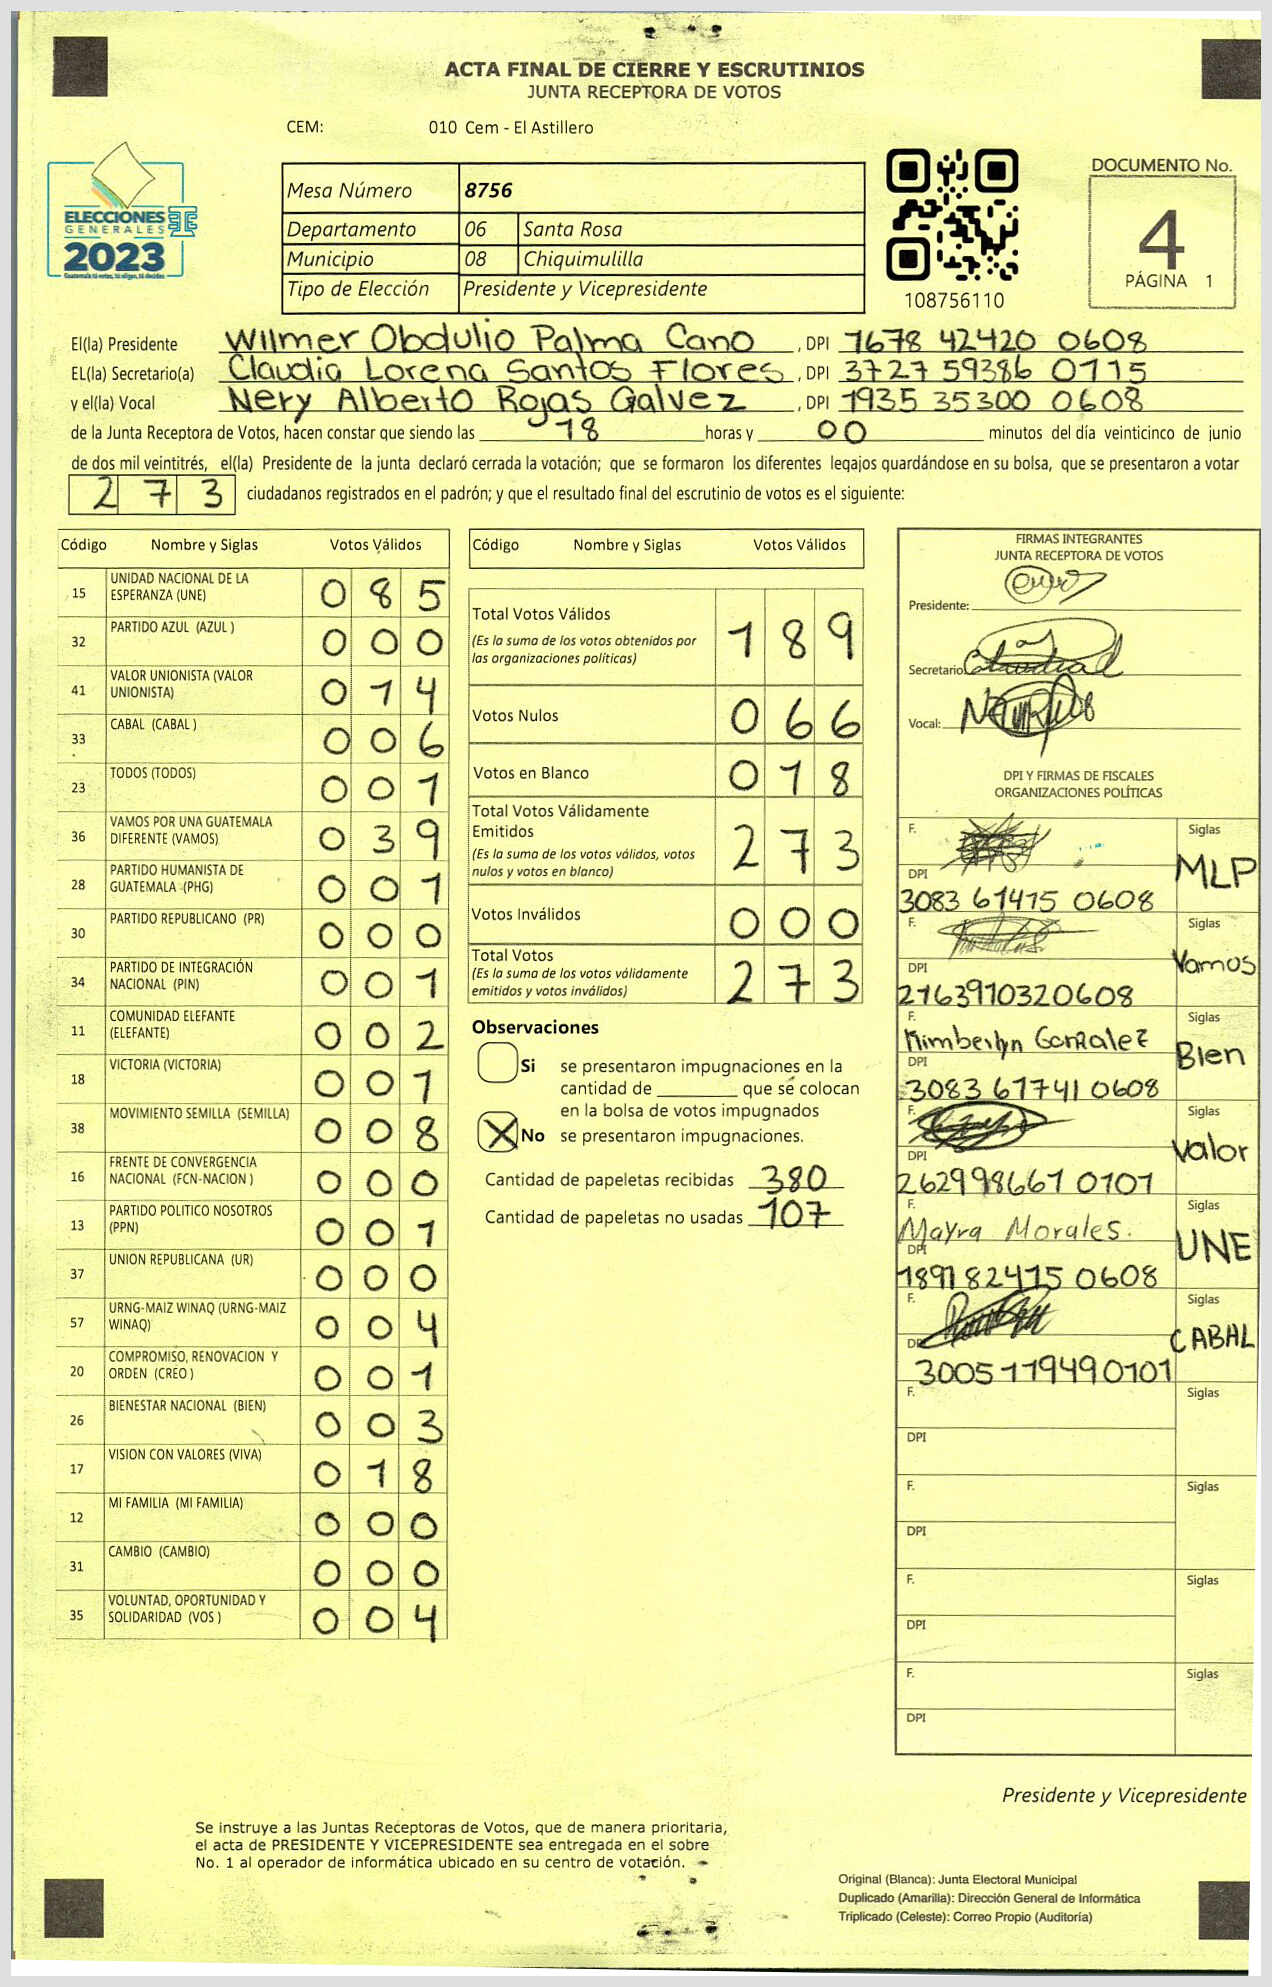 ACTA FINAL DE CIERRE Y ESCRUTINIOS
JUNTA RECEPTORA DE VOTOS
CEM: 010 Cem - El Astillero
ELECCIONES
GENERALES
2023
Guatemala tú votas, tú eliges, tú decides
Mesa Número 8756
Departamento 06 Santa Rosa
Municipio 08 Chiquimulilla
Tipo de Elección Presidente y Vicepresidente
108756110
DOCUMENTO No.
4
PÁGINA 1
El(la) Presidente Wilmer Obdulio Palma Cano , DPI 1678 42420 0608
EL(la) Secretario(a) Claudia Lorena Santos Flores , DPI 3727 59386 0115
y el(la) Vocal Nery Alberto Rojas Galvez , DPI 1935 35300 0608
de la Junta Receptora de Votos, hacen constar que siendo las 18 horas y 00 minutos del día veinticinco de junio
de dos mil veintitrés, el(la) Presidente de la junta declaró cerrada la votación; que se formaron los diferentes legajos guardándose en su bolsa, que se presentaron a votar
273 ciudadanos registrados en el padrón; y que el resultado final del escrutinio de votos es el siguiente:
Código Nombre y Siglas Votos Válidos
15 UNIDAD NACIONAL DE LA ESPERANZA (UNE) 085
32 PARTIDO AZUL (AZUL ) 000
41 VALOR UNIONISTA (VALOR UNIONISTA) 014
33 CABAL (CABAL ) 006
23 TODOS (TODOS) 001
36 VAMOS POR UNA GUATEMALA DIFERENTE (VAMOS) 039
28 PARTIDO HUMANISTA DE GUATEMALA (PHG) 001
30 PARTIDO REPUBLICANO (PR) 000
34 PARTIDO DE INTEGRACIÓN NACIONAL (PIN) 001
11 COMUNIDAD ELEFANTE (ELEFANTE) 002
18 VICTORIA (VICTORIA) 001
38 MOVIMIENTO SEMILLA (SEMILLA) 008
16 FRENTE DE CONVERGENCIA NACIONAL (FCN-NACION ) 000
13 PARTIDO POLITICO NOSOTROS (PPN) 001
37 UNION REPUBLICANA (UR) 000
57 URNG-MAIZ WINAQ (URNG-MAIZ WINAQ) 004
20 COMPROMISO, RENOVACION Y ORDEN (CREO ) 001
26 BIENESTAR NACIONAL (BIEN) 003
17 VISION CON VALORES (VIVA) 018
12 MI FAMILIA (MI FAMILIA) 000
31 CAMBIO (CAMBIO) 000
35 VOLUNTAD, OPORTUNIDAD Y SOLIDARIDAD (VOS ) 004
Código Nombre y Siglas Votos Válidos
Total Votos Válidos 189
(Es la suma de los votos obtenidos por
las organizaciones políticas)
Votos Nulos 066
Votos en Blanco 018
Total Votos Válidamente
Emitidos 273
(Es la suma de los votos válidos, votos
nulos y votos en blanco)
Votos Inválidos 000
Total Votos 273
(Es la suma de los votos válidamente
emitidos y votos inválidos)
Observaciones
Si se presentaron impugnaciones en la
cantidad de ________ que se colocan
en la bolsa de votos impugnados
X No se presentaron impugnaciones.
Cantidad de papeletas recibidas 380
Cantidad de papeletas no usadas 107
FIRMAS INTEGRANTES
JUNTA RECEPTORA DE VOTOS
Presidente:
Secretario
Vocal:
DPI Y FIRMAS DE FISCALES
ORGANIZACIONES POLÍTICAS
F. Siglas
MLP
DPI
3083 61415 0608
F. Siglas
Vamos
DPI
2163910320608
F. Siglas
Kimberlyn Gonzalez
Bien
DPI
3083 61741 0608
F. Siglas
Valor
DPI
262998661 0101
F. Siglas
Mayra Morales.
UNE
DPI
1891 82415 0608
F. Siglas
CABAL
DPI
3005 119490101
F. Siglas
DPI
F. Siglas
DPI
F. Siglas
DPI
F. Siglas
DPI
Presidente y Vicepresidente
Se instruye a las Juntas Receptoras de Votos, que de manera prioritaria,
el acta de PRESIDENTE Y VICEPRESIDENTE sea entregada en el sobre
No. 1 al operador de informática ubicado en su centro de votación.
Original (Blanca): Junta Electoral Municipal
Duplicado (Amarilla): Dirección General de Informática
Triplicado (Celeste): Correo Propio (Auditoría)